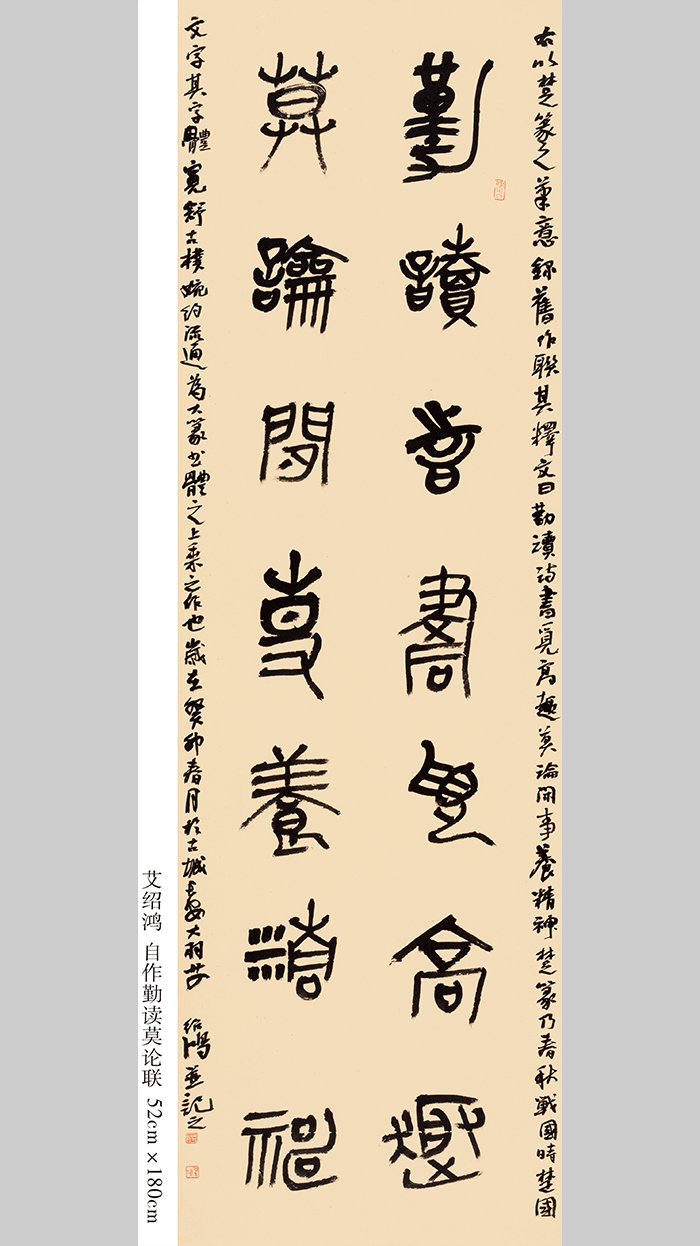 右以楚篆之筆意錄舊作聯其釋文曰勤讀詩書覓高趣莫論閒事養精神楚篆乃春秋戰國時楚國
勤讀詩書覓高趣
莫論閒事養精神
文字其字體寬舒古樸婉約流通為大篆書體之上乘之作也歲在癸卯春月於古城長安大羽艾紹鴻並記之
艾绍鸿 自作勤读莫论联 52cm×180cm